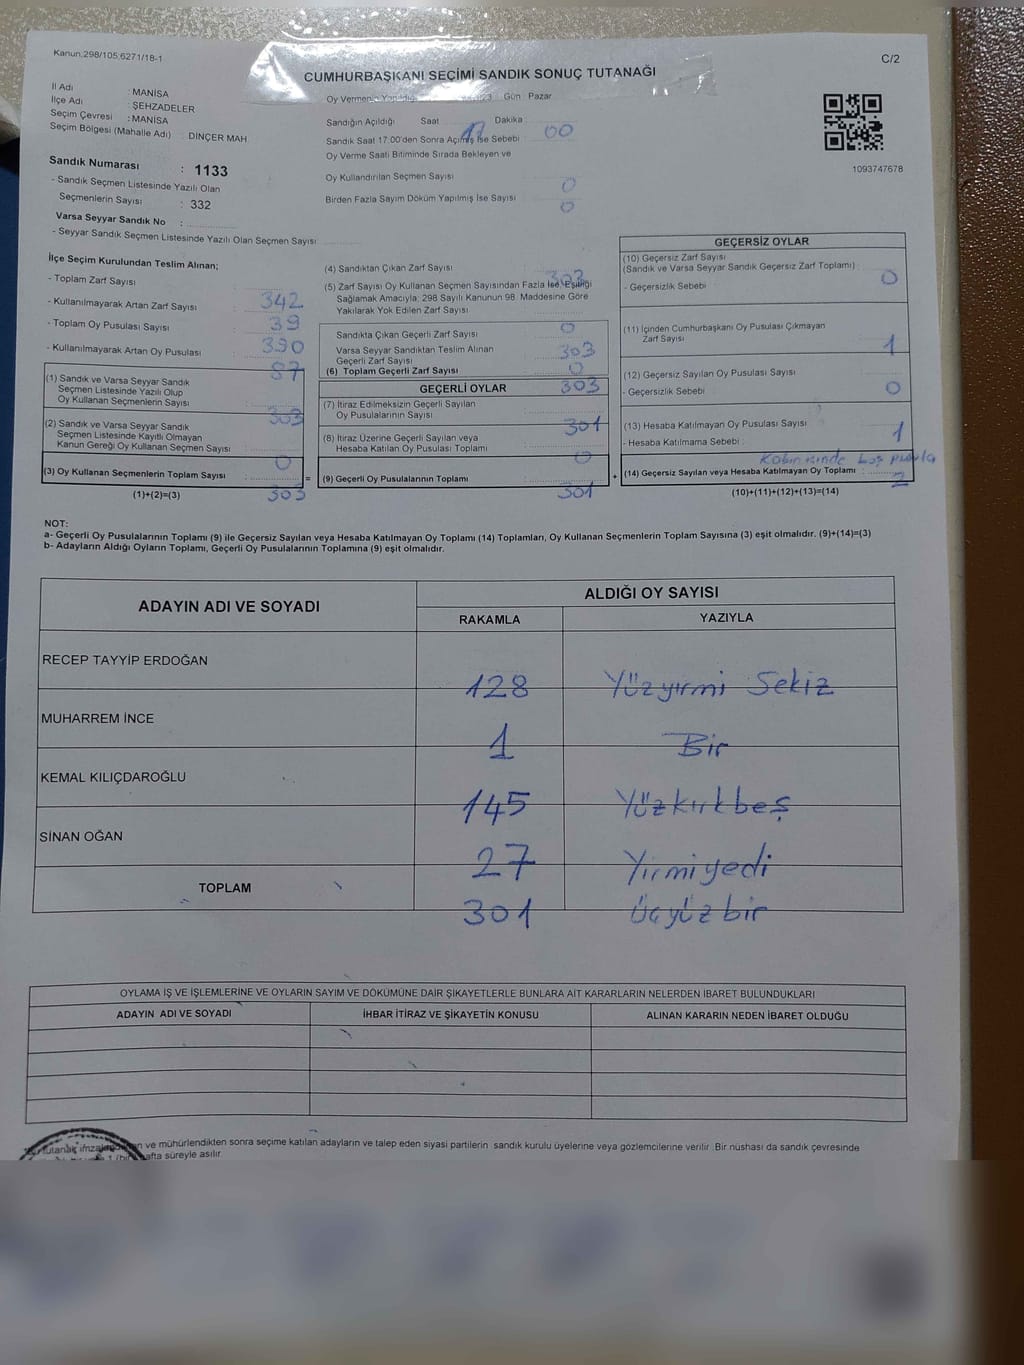 Kanun.298/105;6271/18-1
C/2
CUMHURBAŞKANI SEÇİMİ SANDIK SONUÇ TUTANAĞI
İl Adı : MANİSA
İlçe Adı : ŞEHZADELER
Seçim Çevresi : MANİSA
Seçim Bölgesi (Mahalle Adı) : DİNÇER MAH
Sandık Numarası : 1133
- Sandık Seçmen Listesinde Yazılı Olan
Seçmenlerin Sayısı : 332
Varsa Seyyar Sandık No :
- Seyyar Sandık Seçmen Listesinde Yazılı Olan Seçmen Sayısı:
Oy Vermenin Gün Pazar
Sandığın Açıldığı Saat 17 Dakika 00
Sandık Saat 17:00'den Sonra Açılmış İse Sebebi
Oy Verme Saati Bitiminde Sırada Bekleyen ve
Oy Kullandırılan Seçmen Sayısı 0
Birden Fazla Sayım Döküm Yapılmış İse Sayısı 0
1093747678
İlçe Seçim Kurulundan Teslim Alınan;
- Toplam Zarf Sayısı 342
- Kullanılmayarak Artan Zarf Sayısı 39
- Toplam Oy Pusulası Sayısı 390
- Kullanılmayarak Artan Oy Pusulası 87
(1) Sandık ve Varsa Seyyar Sandık
Seçmen Listesinde Yazılı Olup
Oy Kullanan Seçmenlerin Sayısı 303
(2) Sandık ve Varsa Seyyar Sandık
Seçmen Listesinde Kayıtlı Olmayan
Kanun Gereği Oy Kullanan Seçmen Sayısı 0
(3) Oy Kullanan Seçmenlerin Toplam Sayısı 303
(1)+(2)=(3)
(4) Sandıktan Çıkan Zarf Sayısı 303
(5) Zarf Sayısı Oy Kullanan Seçmen Sayısından Fazla İse, Eşitliği
Sağlamak Amacıyla; 298 Sayılı Kanunun 98. Maddesine Göre
Yakılarak Yok Edilen Zarf Sayısı 0
Sandıkta Çıkan Geçerli Zarf Sayısı 303
Varsa Seyyar Sandıktan Teslim Alınan
Geçerli Zarf Sayısı 0
(6) Toplam Geçerli Zarf Sayısı 303
GEÇERLİ OYLAR
(7) İtiraz Edilmeksizin Geçerli Sayılan
Oy Pusulalarının Sayısı 301
(8) İtiraz Üzerine Geçerli Sayılan veya
Hesaba Katılan Oy Pusulası Toplamı 0
= (9) Geçerli Oy Pusulalarının Toplamı 301
GEÇERSİZ OYLAR
(10) Geçersiz Zarf Sayısı
(Sandık ve Varsa Seyyar Sandık Geçersiz Zarf Toplamı) 0
- Geçersizlik Sebebi
(11) İçinden Cumhurbaşkanı Oy Pusulası Çıkmayan
Zarf Sayısı 1
(12) Geçersiz Sayılan Oy Pusulası Sayısı 0
- Geçersizlik Sebebi
(13) Hesaba Katılmayan Oy Pusulası Sayısı 1
- Hesaba Katılmama Sebebi boş
+ (14) Geçersiz Sayılan veya Hesaba Katılmayan Oy Toplamı : 2
(10)+(11)+(12)+(13)=(14)
NOT:
a- Geçerli Oy Pusulalarının Toplamı (9) ile Geçersiz Sayılan veya Hesaba Katılmayan Oy Toplamı (14) Toplamları, Oy Kullanan Seçmenlerin Toplam Sayısına (3) eşit olmalıdır. (9)+(14)=(3)
b- Adayların Aldığı Oyların Toplamı, Geçerli Oy Pusulalarının Toplamına (9) eşit olmalıdır.
ADAYIN ADI VE SOYADI ALDIĞI OY SAYISI
RAKAMLA YAZIYLA
RECEP TAYYİP ERDOĞAN 128 Yüzyirmi Sekiz
MUHARREM İNCE 1 Bir
KEMAL KILIÇDAROĞLU 145 Yüzkırkbeş
SİNAN OĞAN 27 Yirmiyedi
TOPLAM 301 Üçyüzbir
OYLAMA İŞ VE İŞLEMLERİNE VE OYLARIN SAYIM VE DÖKÜMÜNE DAİR ŞİKAYETLERLE BUNLARA AİT KARARLARIN NELERDEN İBARET BULUNDUKLARI
ADAYIN ADI VE SOYADI İHBAR İTİRAZ VE ŞİKAYETİN KONUSU ALINAN KARARIN NEDEN İBARET OLDUĞU
ve mühürlendikten sonra seçime katılan adayların ve talep eden siyasi partilerin sandık kurulu üyelerine veya gözlemcilerine verilir. Bir nüshası da sandık çevresinde
hafta süreyle asılır.